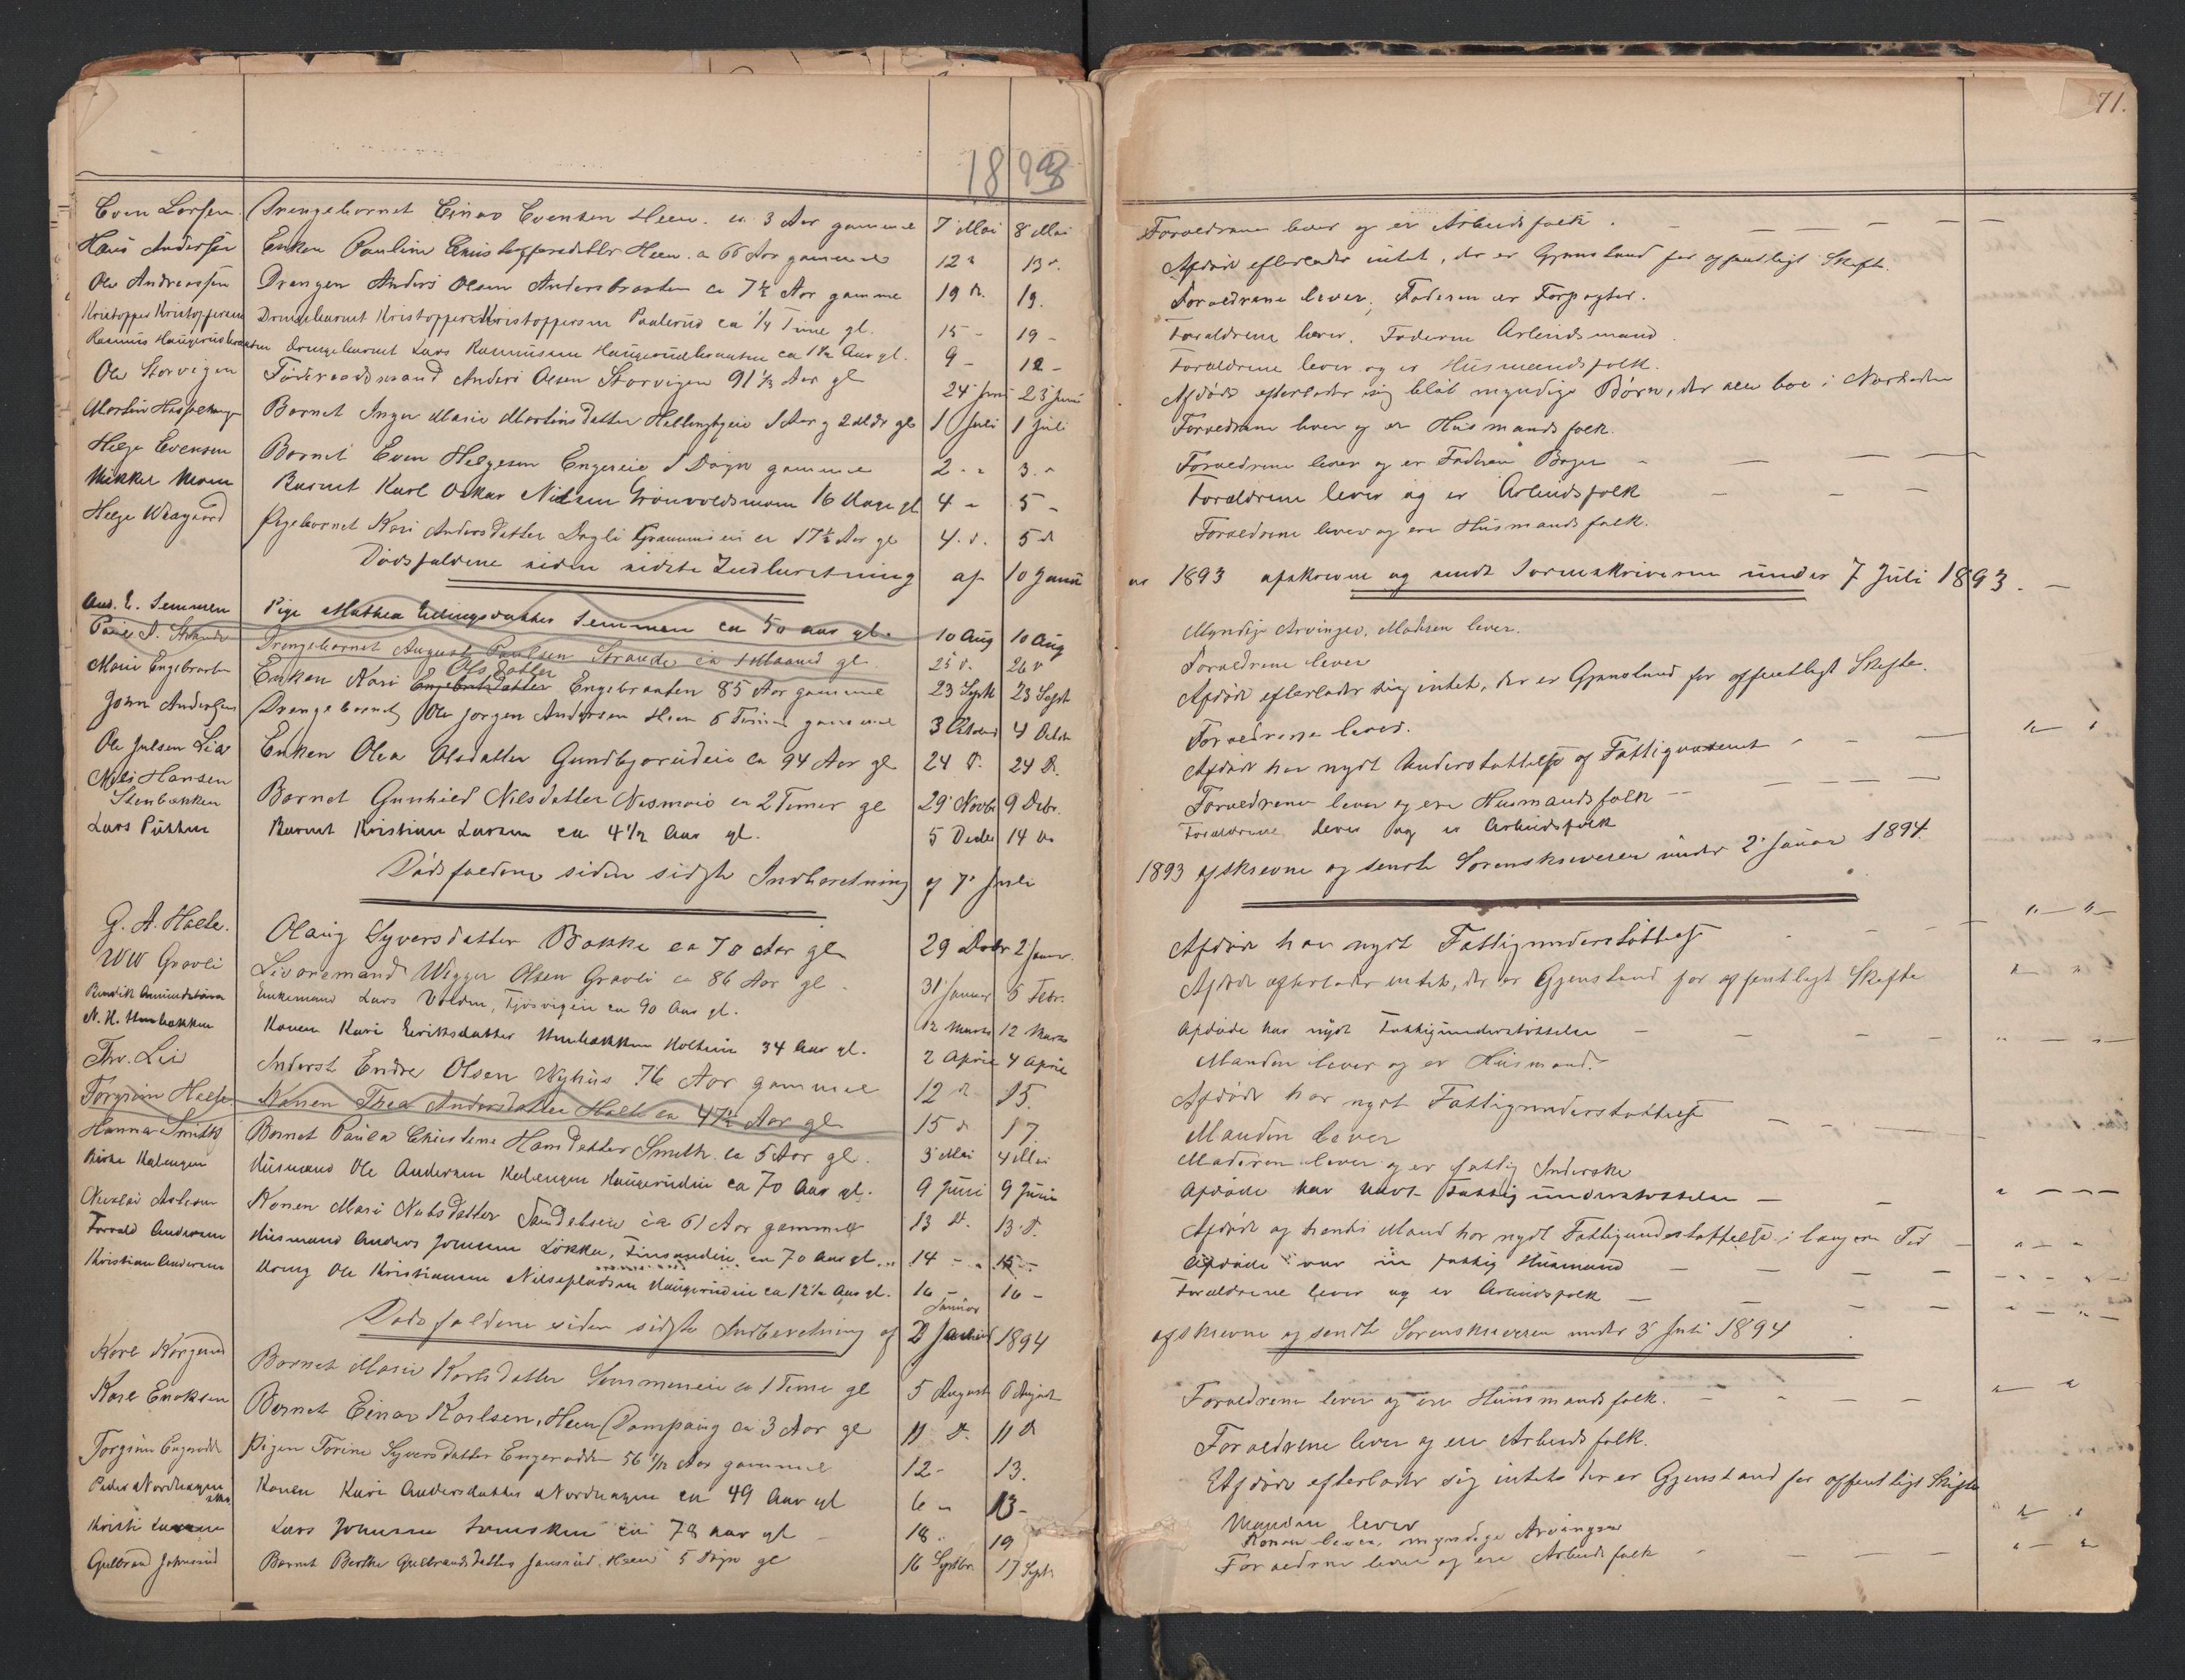 71.
1893
Even Larsen Drengebarnet Einar Evensen Heen. ca 3 Aar gammel 7 Mai 8 Mai Forældrene lever og er Arbeidsfolk.
Hans Andersen Enken Pauline Christoffersdatter Heen. ca 66 Aar gammel 12 " 13 ". Afdøde efterlader intet, der er Gjenstand for offentligt Skifte.
Ole Andreassen Drengen Anders Olsen Andersbraaten ca 7½ Aar gammel 19 D. 19. Forældrene lever, Faderen er Forpagter.
Kristoffer Kristoffersen Drengebarnet Kristoffer Kristoffersen Paalerud ca ¼ Time gl. 15 - 19 - Forældrene lever. Faderen Arbeidsmand.
Rasmus Haugerudbraaten Drengebarnet Lars Rasmussen Haugerudbraaten ca 1½ Aar gl. 9 - 12 - Forældrene lever og er Husmandsfolk.
Ole Storvigen Føderaadsmand Anders Olsen Storvigen 91 ½ Aar gl 24 Juni 23 Juni Afdøde efterlader sig blot myndige Børn, der alle boe i
Martin Barnet Inger Marie Martinsdatter 1 Aar g 2 Mdr gl 1 Juli 1 Juli Forældrene lever og er Husmandsfolk.
Helge Evensen Barnet Even Helgesen Engereie 1 Døgn gammel 2 - " 3 - " Forældrene lever og er Faderen Bager
Mikkel Moen Barnet Karl Oskar Nilsen Grønvoldsmoen 16 Uger gl 4 - 5 - Forældrene lever og er Arbeidsfolk
Helge Waagaard Pigebarnet Kari Andersdatter Dagli ca 17½ Aar gl 4. d. 5 d Forældrene lever og ere Husmandsfolk.
Dødsfaldene siden sidste Indberetning af 10 Januar 1893 afskrevne og sendt Sorenskriveren under 7 Juli 1893.
And. E. Semmen Pige Mathea Erlingsdatter Semmen ca 50 aar gl. 10 Aug 10 Aug Myndige Arvinger, Moderen lever.
Paul A. Strande Drengebarnet August Paulsen Strande ca 1 Maaned gl. 25 d. 26 d Forældrene lever
Marie Engebraaten Enken Kari Engebretsdatter Olsdatter Engebraaten 85 Aar gammel 23 Sept 23 Sept Afdøde efterlader sig intet, der er Gjenstand for offentligt Skifte.
John Andersen Drengebarnet Ole Jørgen Andersen Heen 6 Timer gammel 3 Oktober 4 Oktbr Forældrene lever.
Ole Julsen Lia Enken Olea Olsdatter Gundbjørudeie ca 94 Aar gl 24 D. 24 D. Afdøde har nydt Understøttelse af Fattigvæsenet
Nils Hansen Stenbakken Barnet Gunhild Nilsdatter Næsmoie ca 2 Timer gl 29 Novbr 9 Debr. Forældrene lever og ere Husmandsfolk
Lars Putten Barnet Kristian Larsen ca 4½ Aar gl. 5 Decbr 14 do Forældrene lever og er Arbeidsfolk
Dødsfaldene siden sidste Indberetning af 7 Juli 1893 afskrevne og sendte Sorenskriveren under 2 Januar 1894.
G. A. Halte. Olaug Syversdatter Bakke ca 70 Aar gl 29 Debr 2 Januar. Afdøde har nydt Fattigunderstøttelse
WW Gravli Livøremand Wegger Olsen Gravli ca 86 Aar gl. 31 Januar 5 Febr. Afdøde efterlader intet, der er Gjenstand for offentligt Skifte
Enkemand Lars Volden, ca 90 Aar gl. 12 Marts 12 Marts Afdøde har nydt Fattigunderstøttelse
N. H. Stenbakken Konen Kari Eeriksdatter Stenbakken Holteeie 34 Aar gl. 2 April 4 April Manden lever og er Husmand.
Thv. Lie Inderst Endre Olsen Nyhus 76 Aar gammel 12 d 15. Afdøde har nydt Fattigunderstøttelse
Torgrim Halte Konen Thea Andersdatter Halte ca 47½ Aar gl 15 d 17. Manden lever
Hanna Smith Barnet Paula Christine Hansdatter Smith. ca 5 Aar gl. 3 Mai 4 Mai Moderen lever og er fattig Inderske
Husmand Ole Andersen Haugerudeie ca 70 Aar gl. 9 Juni 9 Juni Afdøde har havt Fattigunderstøttelse
Konen Mari Nubsdatter ca 61 Aar gammel 13 D. 13 D. Afdøde og hendes Mand har nydt Fattigunderstøttelse i længere Tid
Torvald Andersen Husmand Anders Johnsen Løkka, ca 70 aar gl. 14 - 15 - Afdøde var en fattig Husmand
Kristian Andersen Dreng Ole Kristiansen Nilsepladsen Haugerudeie ca 12½ Aar gl. 16 - 16 - Forældrene lever og er Arbeidsfolk
Dødsfaldene siden sidste Indberetning af 2 Januar 1894 afskrevne og sendte Sorenskriveren under 3 Juli 1894
Karl Barnet Marie Karlsdatter Semmeneie ca 1 Time gl 5 August 6 August Forældrene lever og ere Husmandsfolk.
Karl Enoksen Barnet Einar Karlsen, Heen Dampsaug ca 3 Aar gl 11 D. 11 D Forældrene lever og ere Arbeidsfolk.
Torgrim Engerodden Pigen Torine Syversdatter Engerodden 56 Aar gammel 12 - 13. Afdøde efterlader sig intet der er Gjenstand for offentligt Skifte
Peder Nordhagen Konen Kari Andersdatter Nordhagen ca 49 Aar gl 6 " 13 - Manden lever
Kristi Larsen Lars Johnsen ca 78 aar gl 18. 19 Konen lever, myndige Arvinger
Gulbrand Johnsrud Barnet Berthe Gulbrandsdatter Heen 5 Døgn gl 16 Septbr. 17 Septr Forældrene lever og ere Arbeidsfolk